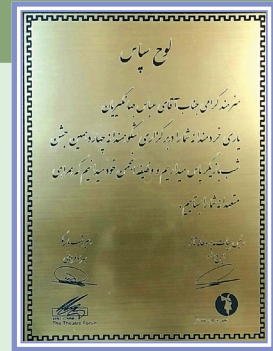 لوح سپاس
هنرمند گرامی جناب آقای عباس جهانگیریان
یاری خردمندانه شما را در برگزاری شکوهمندانه چهاردهمین جشن
شب بازیگر پاس میداریم و وظیفه انجمن خود میدانیم که همراهی
متعهدانه شما را بستاییم.
The Theatre Forum